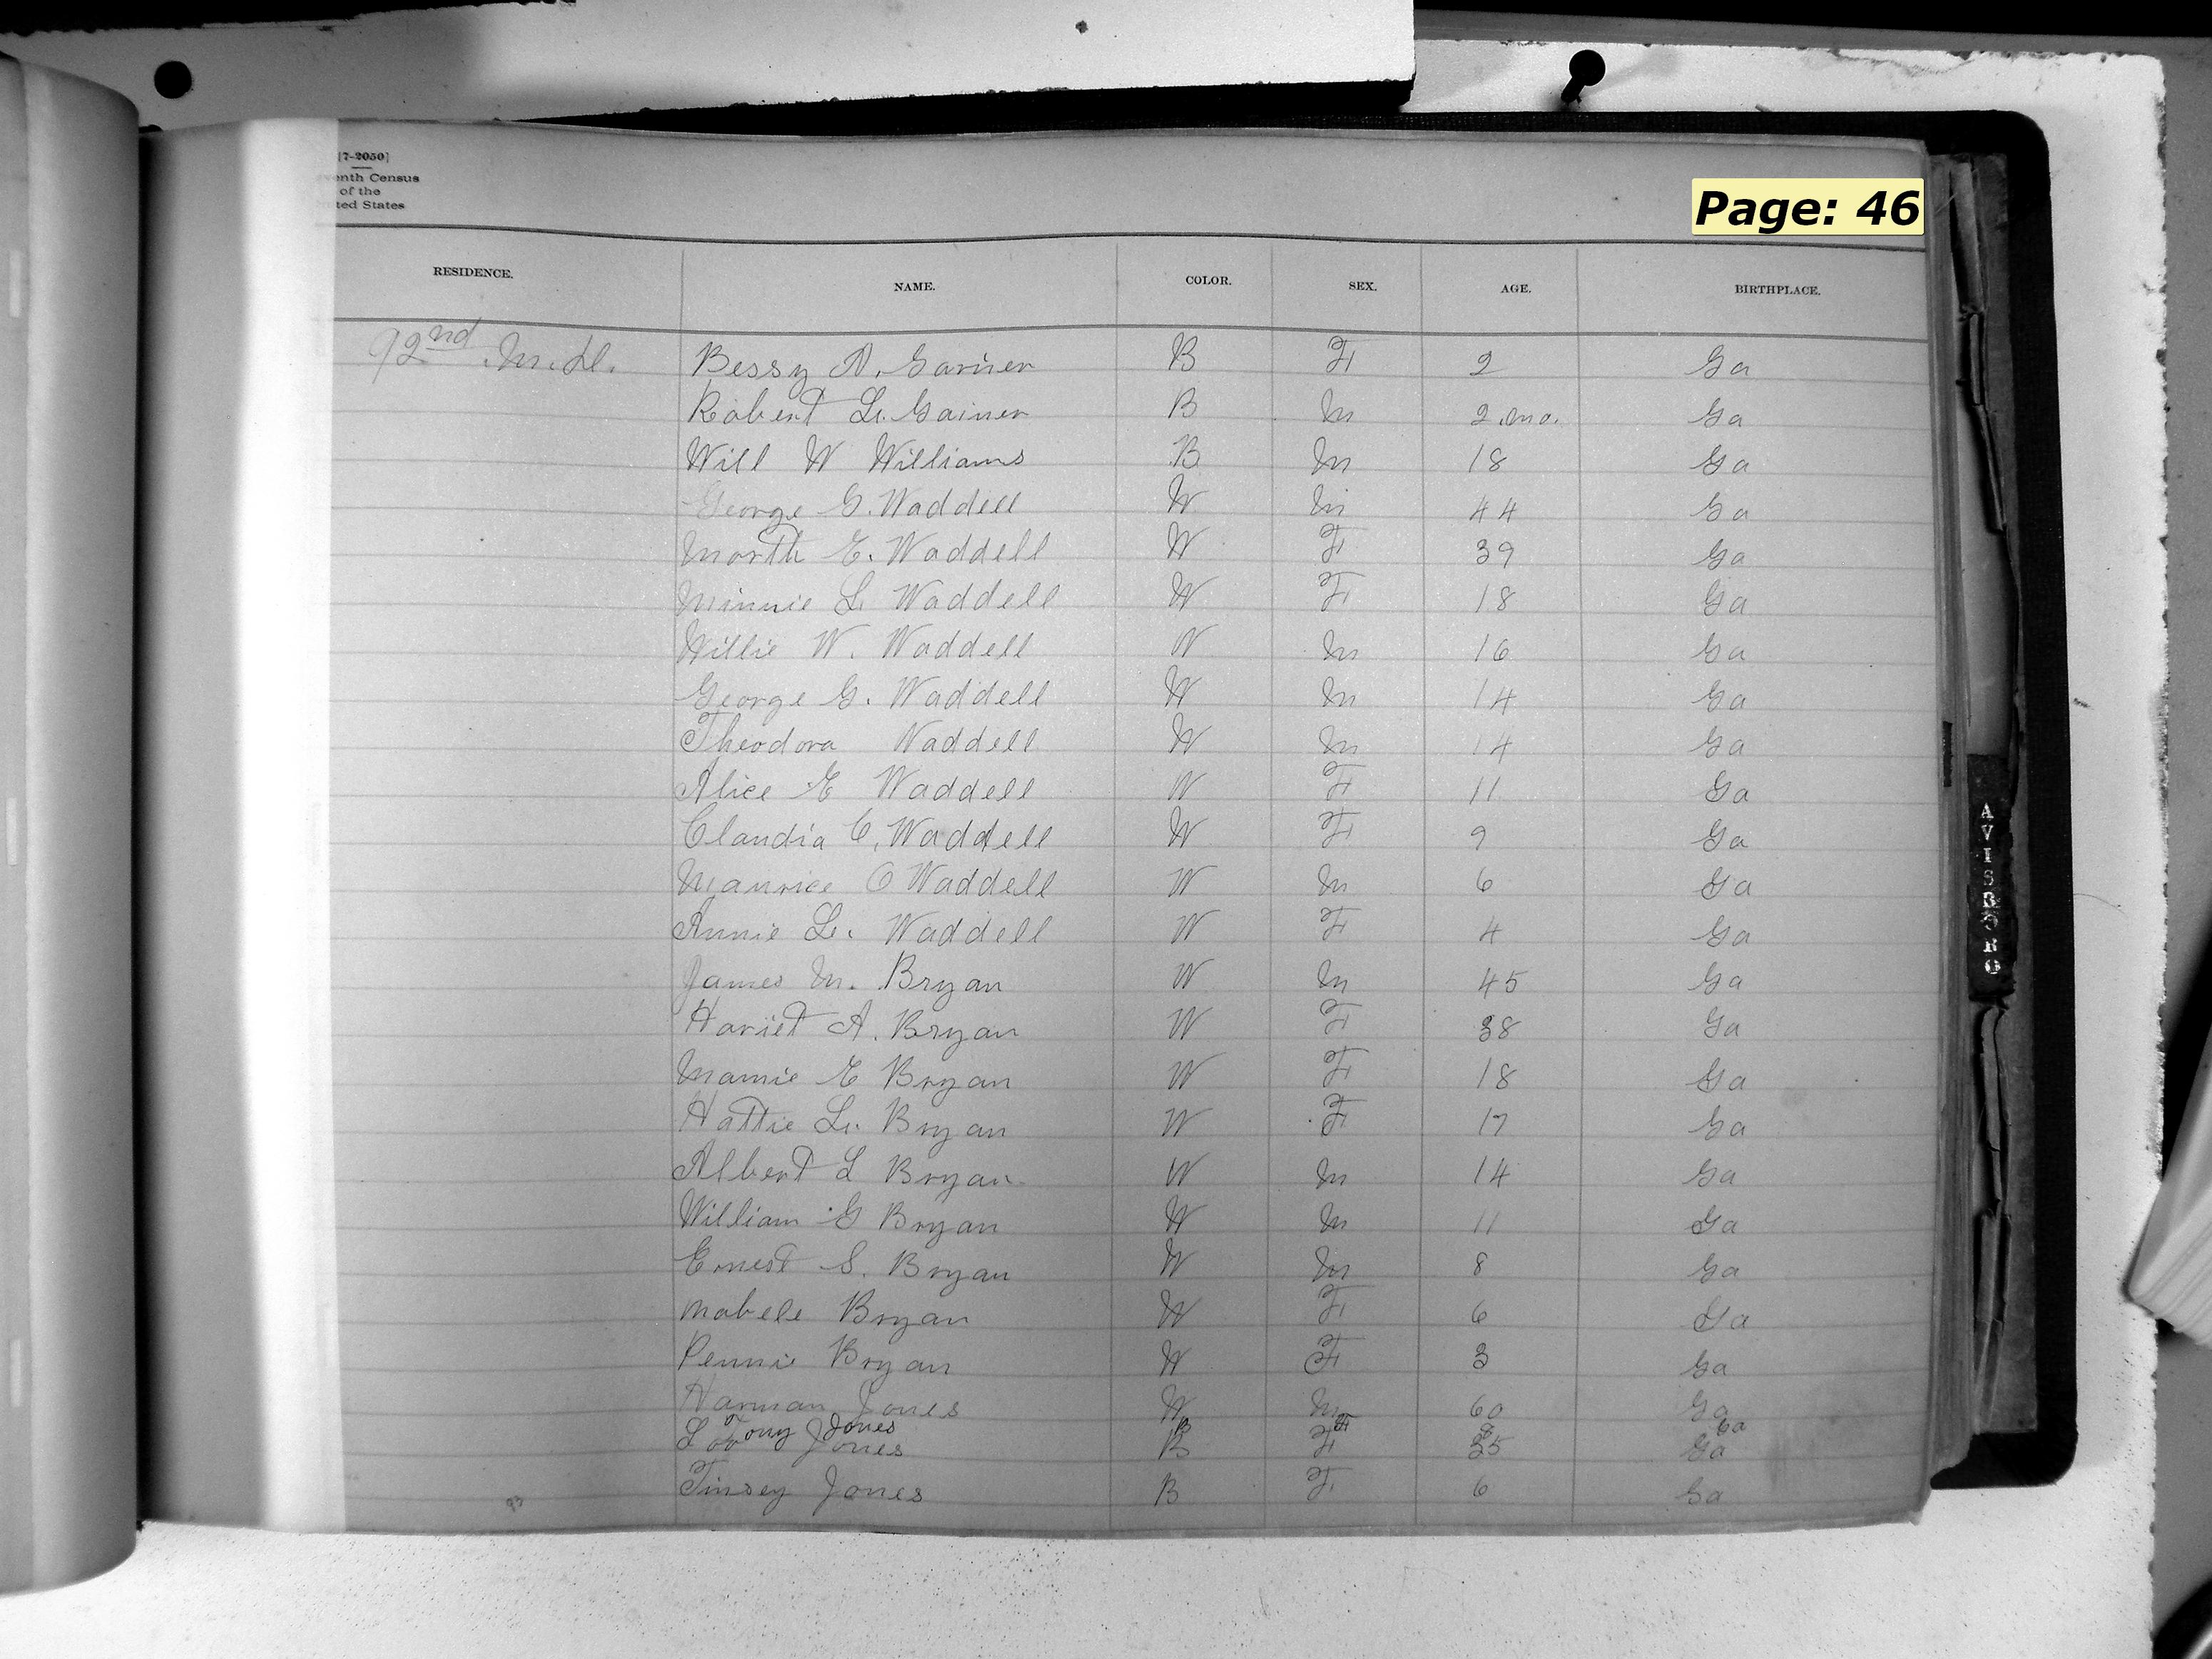 [7-2050]
enth Census
of the
ted States
Page: 46
RESIDENCE. NAME. COLOR. SEX. AGE. BIRTHPLACE.
92nd M.D. Bessy A. Garner B F 2 Ga
Robert L. Gainer B M 2 mo. Ga
Will W Williams B M 18 Ga
George G. Waddell W M 44 Ga
Marth E. Waddell W F 39 Ga
Minnie L. Waddell W F 18 Ga
Willie W. Waddell W M 16 Ga
George G. Waddell W M 14 Ga
Theodora Waddell W M 14 Ga
Alice E Waddell W F 11 Ga
Claudia C. Waddell W F 9 Ga
Maurice O Waddell W M 6 Ga
Annie L. Waddell W F 4 Ga
James M. Bryan W M 45 Ga
Hariet A. Bryan W F 38 Ga
Mamie E Bryan W F 18 Ga
Hattie L. Bryan W F 17 Ga
Albert L Bryan W M 14 Ga
William G Bryan W M 11 Ga
Ernest S. Bryan W M 8 Ga
Mabele Bryan W F 6 Ga
Pennie Bryan W F 3 Ga
Harman Jones W M 60 Ga
Tony Jones B F 8 Ga
Jones B F 35 Ga
Tinsey Jones B F 6 Ga
93
AVISBORO